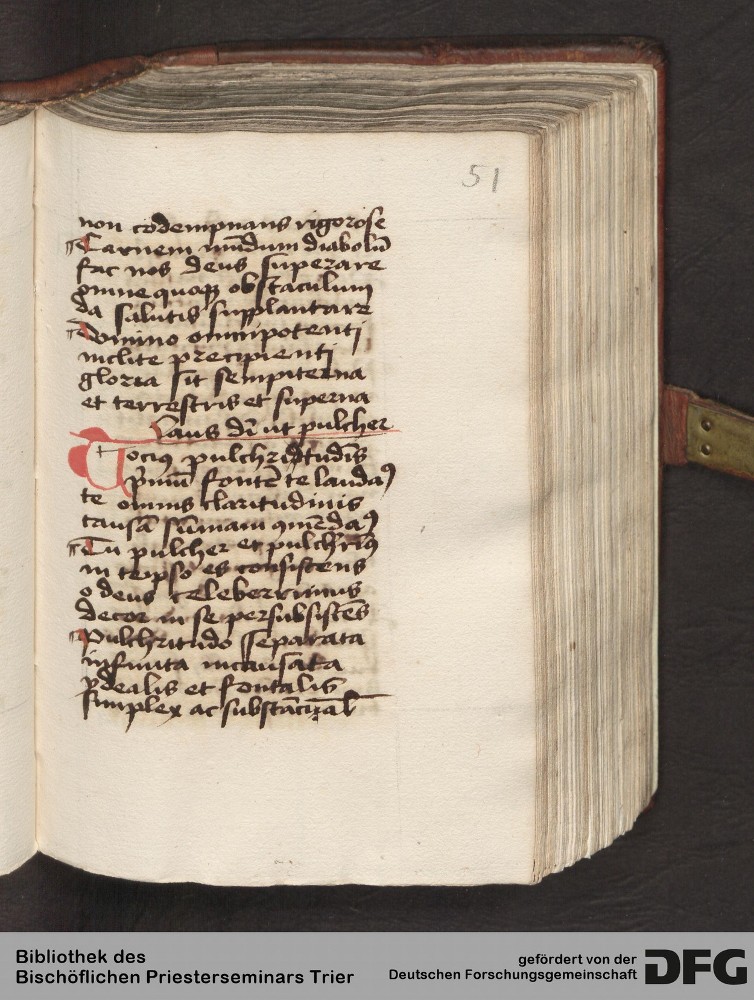 51
non cōdempnans rigorose
Carnem mūdum diabolū
fac nos deus superare
omne quoqꝫ obstaculum
da salutis supplantare
Domino omnipotenti
inclite precipienti
gloria sit sempiterna
et terrestris et superna
Laus dī ut pulcher
Tociꝰ pulchritudīs
pͥmū fontē te laudaꝰ
te omnis claritudinis
causā sūmam ꝯmēdaꝰ
Tu pulcher et pulchriꝰ
in teipso es consistens
o deus celeberrimus
decor in se per subsistēs
Pulchritudo separata
infinita incausata
ydealis et fontalis
simplex ac substācial
Bibliothek des
Bischöflichen Priesterseminars Trier
gefördert von der
Deutschen Forschungsgemeinschaft
DFG